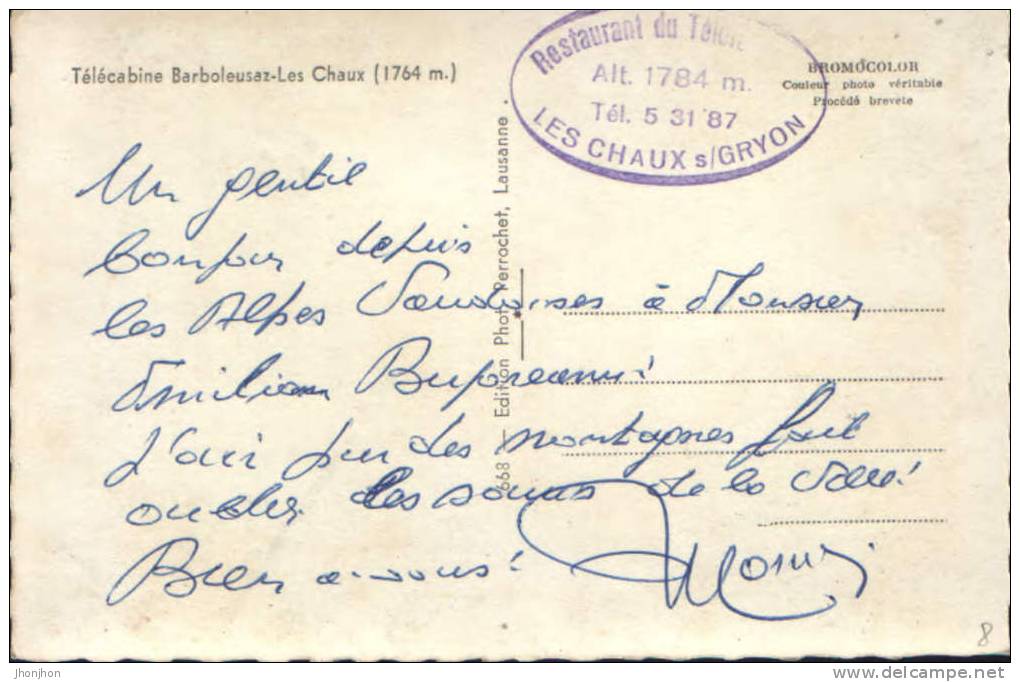 Télécabine Barboleusaz-Les Chaux (1764 m.)
Restaurant du Télé
Alt. 1784 m.
Tél. 5 31 87
LES CHAUX s/GRYON
BROMOCOLOR
Couleur photo véritable
Procédé breveté
668 — Edition Photo Perrochet, Lausanne.
Un gentil
bonjour depuis
les Alpes Vaudoises à Monsieur
Emilian
l'air pur des montagnes fait
oublier les soucis de la
Bien à vous!
8
jhonjhon
www.delcampe.net